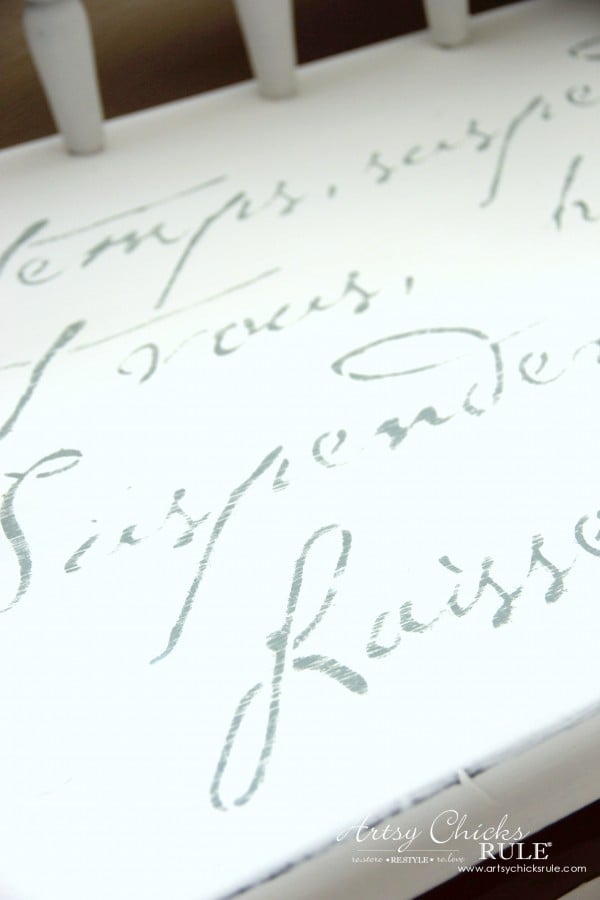 temps, suspe
t vous, h
Suspende
Laisse
Artsy Chicks
RULE®
restore • RESTYLE • re.love
www.artsychicksrule.com